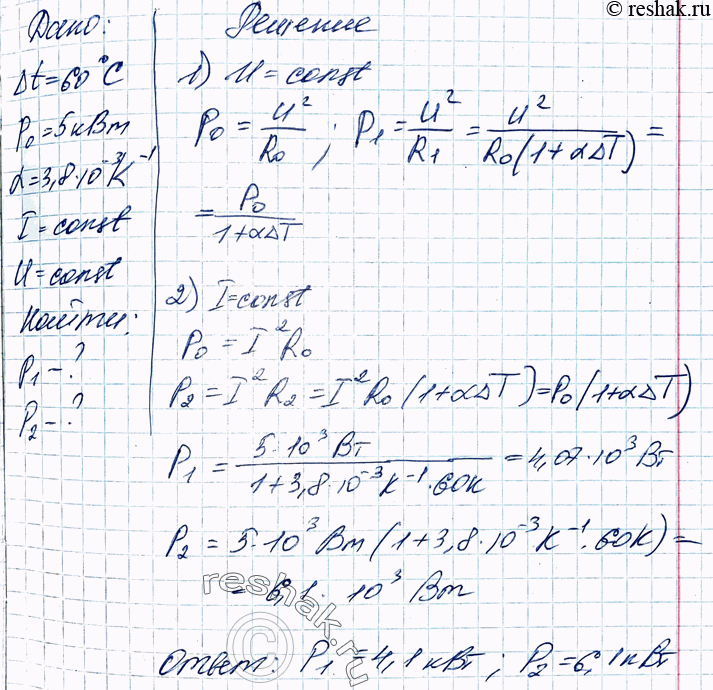 © reshak.ru
Дано:
Δt=60°C
P₀=5кВт
α=3,8·10⁻³K⁻¹
I=const
U=const
Найти:
P₁-?
P₂-?
Решение
1) U=const
P₀=U²/R₀; P₁=U²/R₁=U²/R₀(1+αΔT)=
=P₀/1+αΔT
2) I=const
P₀=I²R₀
P₂=I²R₂=I²R₀(1+αΔT)=P₀(1+αΔT)
P₁=5·10³Вт/1+3,8·10⁻³K⁻¹·60K=4,07·10³Вт
P₂=5·10³Вт(1+3,8·10⁻³K⁻¹·60K)=
=6,1·10³Вт
reshak.ru
©
Ответ: P₁=4,1кВт; P₂=6,1кВт